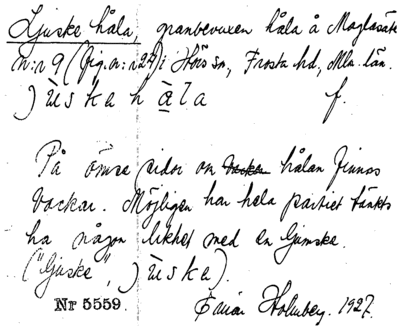 Ljuske håla, granbevuxen håla å Maglasäte
n:r 9 (fig. n:r 24) i Hörs sn, Frosta hd, Mlm. län.
) ù s k a h à l a f.
På ömse sidor om backen hålan finnas
backar. Möjligen har hela partiet tänkts
ha någon likhet med en ljumske.
("ljuske", ) ù s k a ).
Nr 5559. Holmberg. 1927.